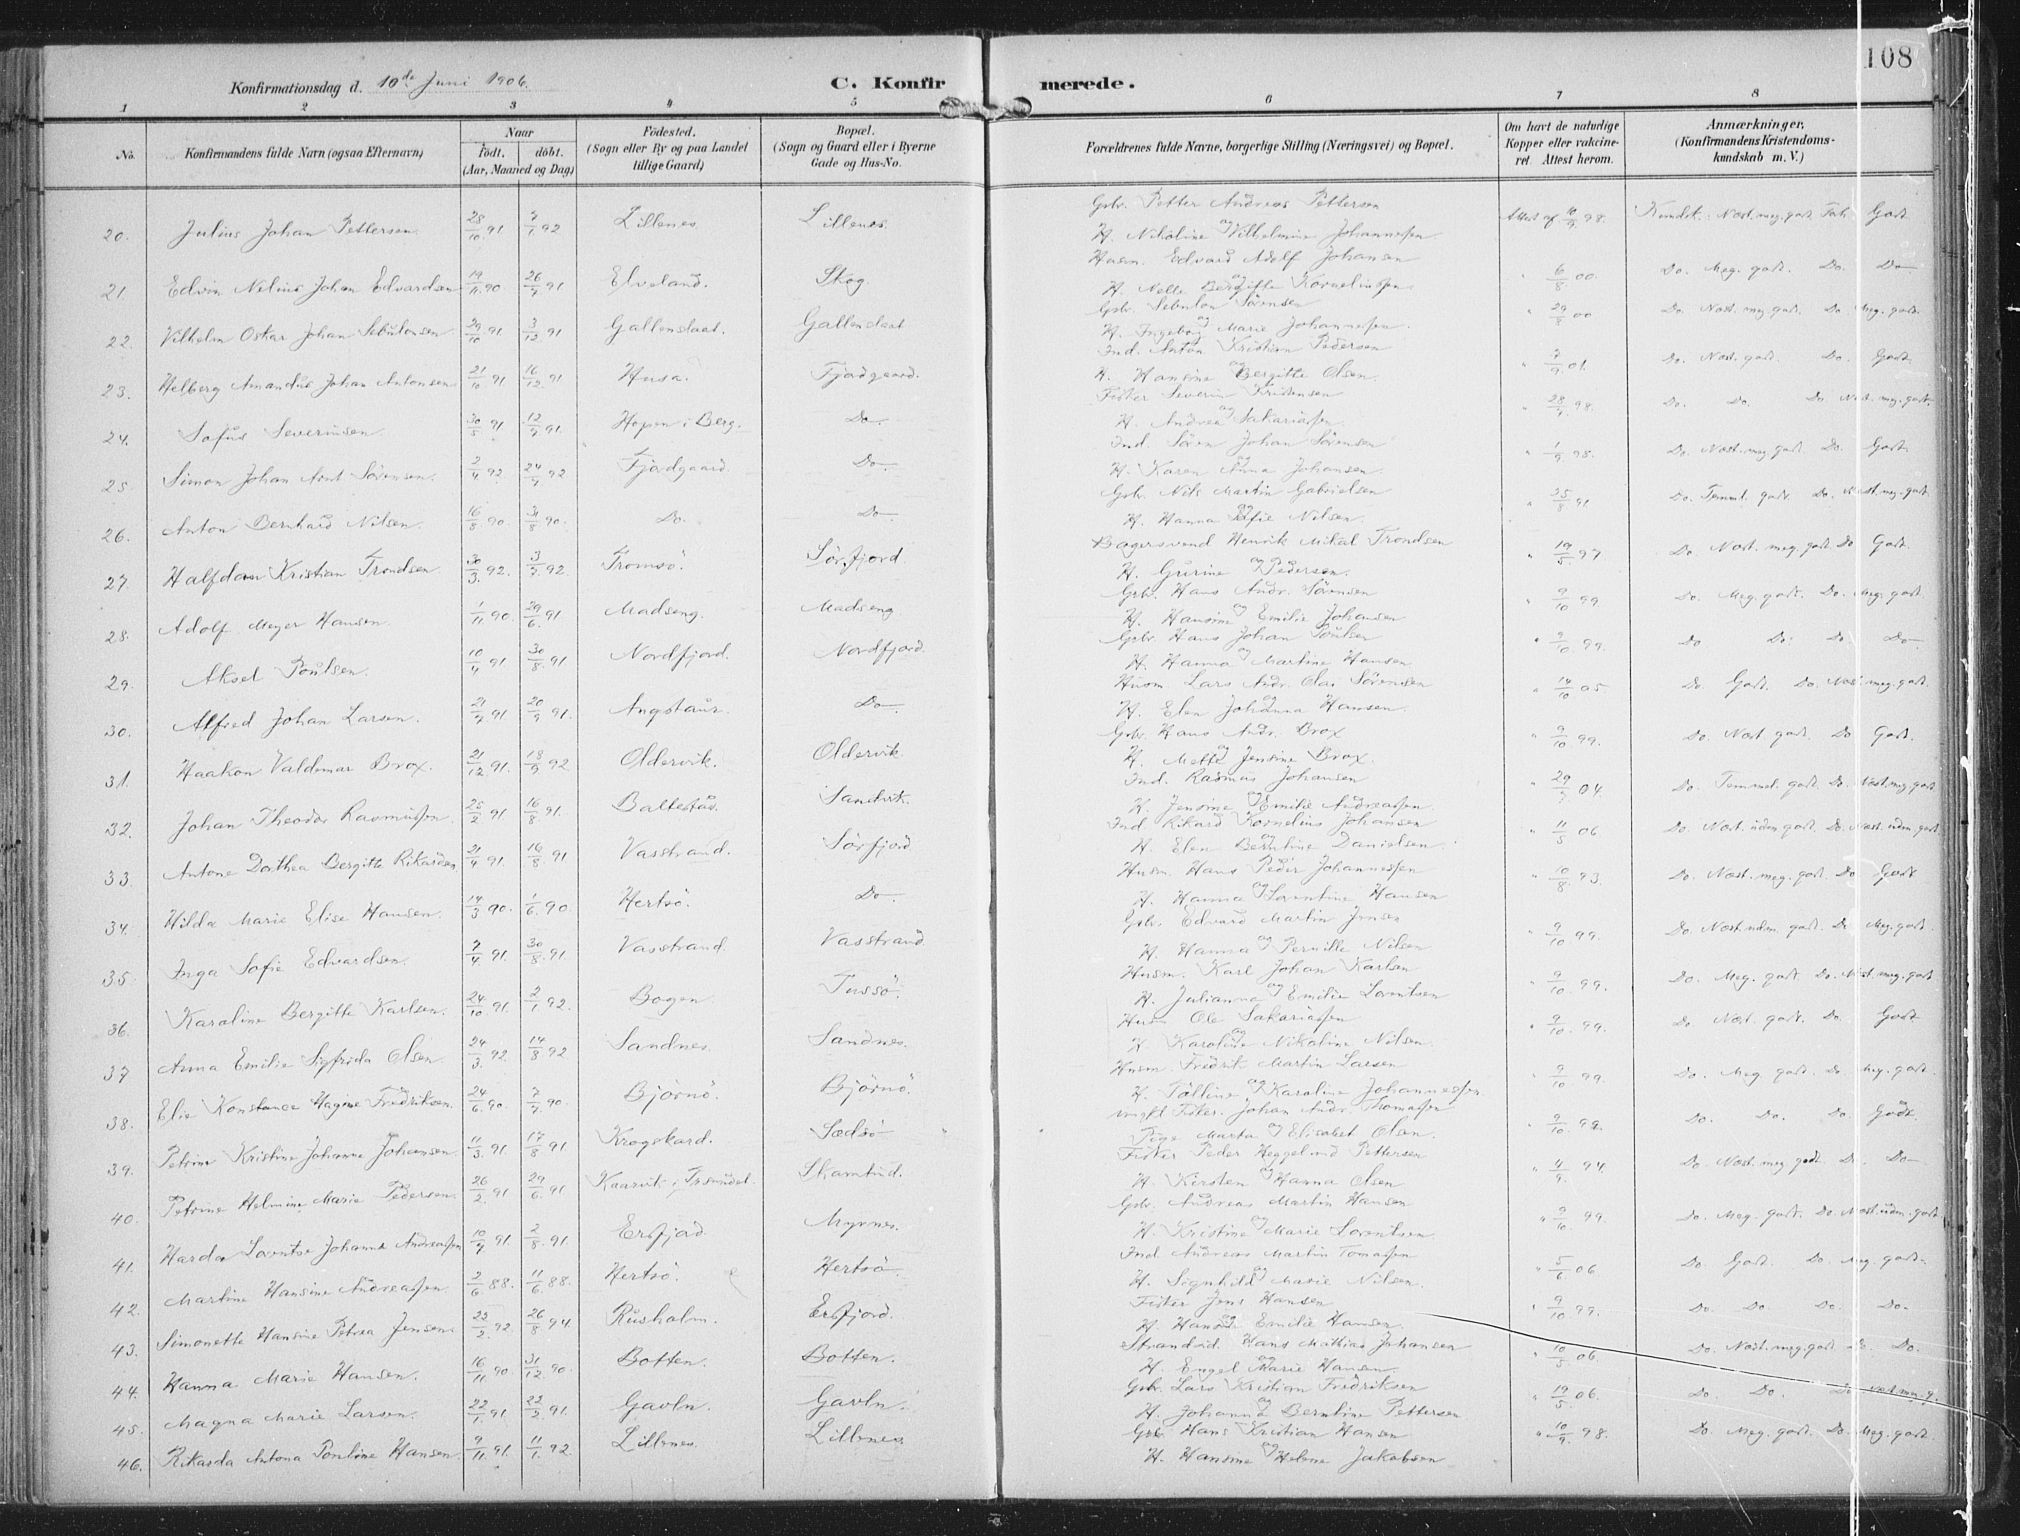 108
Konfirmationsdag d. 10de Juni 1906.
C. Konfirmerede.
1 2 3 4 5 6 7 8
No.
Konfirmandens fulde Navn (ogsaa Efternavn)
Naar
Födt. döbt.
(Aar, Maaned og Dag)
Födested.
(Sogn eller By og paa Landet
tillige Gaard)
Bopæl.
(Sogn og Gaard eller i Byerne
Gade og Hus-No.
Forældrenes fulde Navne, borgerlige Stilling (Næringsvei) og Bopæl.
Om havt de naturlige
Kopper eller vakcine-
ret. Attest herom.
Anmærkninger.
(Konfirmandens Kristendoms-
kundskab m. V.)
20. Julius Johan Pettersen. 28/10 91 7/1 92 Lillenes Lillenes Grbr. Petter Andreas Pettersen
og H. Nikoline Vilhelmine Johannesen Attest af 10/9 98. Kundsk.: Næst. meg. godt Godt
21. Edvin Nelius Johan Edvardsen 19/11 90 26/7 91 Elveland. Skog. Husm. Edvard Adolf Johansen
og H. Nelle Bergitte Kornelius(s)en " 6/8 00. Do. Meg. godt. Do. Do
22. Vilhelm Oskar Johan Sebulonsen 29/10 91 3/12 91 Gallenslaat. Gallenslaat Grbr. Sebulon Sørensen
og H. Ingeborg Marie Johannesen. " 29/8 00 Do. Næst. meg godt. Do. Meg. godt.
23. Helberg Amandus Johan Antonsen 21/10 91 16/12 91 Husø. Fjordgaard. Ind. Anton Kristian Pedersen
og H. Hansine Bergitte Olsen. " 7/9 01. Do. Næst. godt. Do. Godt
24. Sofus Severinsen 30/5 91 12/7 91. Hopen i Berg. Do. Fisker Severin Kristensen
og H. Andrea Sakariassen " 28/9 98. Do. Do. Do. Næst. meg. godt.
25. Simon Johan Arnt Sørensen. 2/4 92 24/7 92 Fjordgaard. Do. Ind. Sören Johan Sörensen
og H. Karen Anna Johansen. " 1/9 98. Do. Næst. meg godt Do. Godt
26. Anton Bernhard Nilsen. 16/8 90 31/8 90. Do. Do. Grbr. Nils Martin Gabrielsen
og H. Hanna Sofie Nilsen. " 25/8 91. Do. Temml. godt. Do. Næst. meg. godt
27. Halfdan Kristian Trondsen 30/3 92. 3/7 92 Tromsö. Sörfjord Bagersvend Henrik Mikal Trondsen
og H. Gurine Pedersen. " 19/5 97 Do. Næst. meg godt Do Godt.
28. Adolf Meyer Hansen. 1/11 90. 29/6 91 Madseng. Madseng. Grbr. Hans Andr. Sörensen
og H. Hansine Emilie Johansen " 9/10 99 Do. Meg. godt. Do. Meg. godt.
29. Aksel Poulsen. 10/4 91 30/8 91 Nordfjord. Nordfjord. Grbr. Hans Johan Poulsen
og H. Hanna Martine Hansen " 9/10 99. Do Do. Do Do
30. Alfred Johan Larsen. 21/7 91 20/9 91. Angstaur. Do. Husm. Lars Andr. Olai Sörensen
og H. Elen Johanna Hansen. " 14/10 05. Do. Godt. Do. Næst meg. godt.
31. Haakon Valdemar Brox. 21/12 91. 18/9 92 Oldervik. Oldervik. Grbr. Hans Andr. Brox
og H. Mette Jensine Brox. " 9/10 99. Do. Næst. godt. Do Godt.
32. Johan Theodor Rasmussen. 25/2 91 16/8 91. Baltestad. Sandvik. Ind. Rasmus Johansen
og H. Jensine Emilie Andreassen. " 29/7 04. Do. Temmel. godt. Do. Næst. meg godt
33. Antone Dorthea Bergitte Rikardsen 21/4 91. 16/8 91 Vasstrand. Sörfjord Ind. Rikard Kornelius Johansen
og H. Elen Berntine Danielsen. " 11/5 06 Do. Næst. udm godt. Do. Næst. udm. godt
34. Hilda Marie Elise Hansen. 14/3 90. 1/6 90 Hertsö. Do. Husm. Hans Peder Johannessen
og H. Hanna Lorentine Hansen " 10/8 93. Do. Næst. meg. godt. Do Godt
35. Inga Sofie Edvardsen. 7/4 91. 30/8 91 Vasstrand. Vasstrand Grbr. Edvard Martin Jensen
og H. Hanna Pernille Nilsen " 9/10 99. Do. Næst. udm. godt. Do. Meg. godt.
36. Karoline Bergitte Karlsen. 24/10 91. 2/1 92. Bogen Tussö. Husm. Karl Johan Karlsen
og H. Julianna Emilie Lorntsen " 9/10 99. Do. Meg. godt. Do. Næst. meg. godt
37 Anna Emilie Sigfrida Olsen 24/3 92. 14/8 92 Sandnes. Sandnes. Husm Ole Sakariassen
og H. Karoline Nikoline Nilsen. " 9/10. 99. Do. Næst. godt. Do. Godt
38. Elie Konstance Hagine Fredriksen. 24/6 90. 7/7 90. Björnö. Björnö. Husm. Fredrik Martin Larsen
og H. Tolline Karoline Johannessen. " 9/10 99. Do. Meg godt. Do. Meg. godt.
39. Petrine Kristine Johanne Johansen. 11/3 91. 17/8 91 Krogskard. Sedsö Ungkl. Fisker. Johan Andr. Thomassen
og Pige Marta Elisabet Olsen. " 9/10. 99. Do. Do. Do. Godt.
40. Petrine Helmine Marie Pedersen. 26/2 91 29/6 91. Kaarvik i Tr.sundet. Skamtind. Fisker Peder Heggelund Pettersen
og H. Kirsten Hanna Olsen " 4/9. 94 Do. Næst. meg godt Do. Do
41. Harda Lorentse Johanna Andreassen 10/7 91 2/8. 91. Ersfjord. Myrnes. Grbr. Andreas Martin Hansen
og H. Kristine Marie Lorentsen " 9/10. 99. Do. Meg. godt. Do. Næst. udm. godt
42. Martine Hansine Andreassen. 2/6 88. 11/6 88. Hertsö. Hertsö. Ind. Andreas Martin Tomassen
og H. Signhild Marie Nilsen. " 5/6 06 Do. Godt. Do. Meg. godt.
43. Simonette Hansine Petrea Jensen. 22/2 92. 26/8 94 Rusholm. Ersfjord. Fisker Jens Hansen
og H. Hansine Emilie Hansen. " 9/10 99. Do. Do. Do. Do.
44. Hanna Marie Hansen. 16/11 90 31/12 90. Botten. Botten. Strandsid. Hans Mathias Johansen
og H. Engel Marie Hansen " 10/5 06. Do. Næst. meg. godt Do. Do.
45. Magna Marie Larsen. 22/1 91 22/2 91 Gavln. Gavln. Grbr. Lars Kristian Fredriksen
og H. Johanna Berntine Pettersen " 19/5 06. Do. Do. Do. Næst meg. g.
46. Rikarda Antona Pouline Hansen 9/11 91. 11/1 92. Lillenes. Lillenes Grbr. Hans Kristian Hansen
og H. Hansine Helene Jakobsen " 10/9. 98. Do. Meg. godt. Do. Meg. godt.